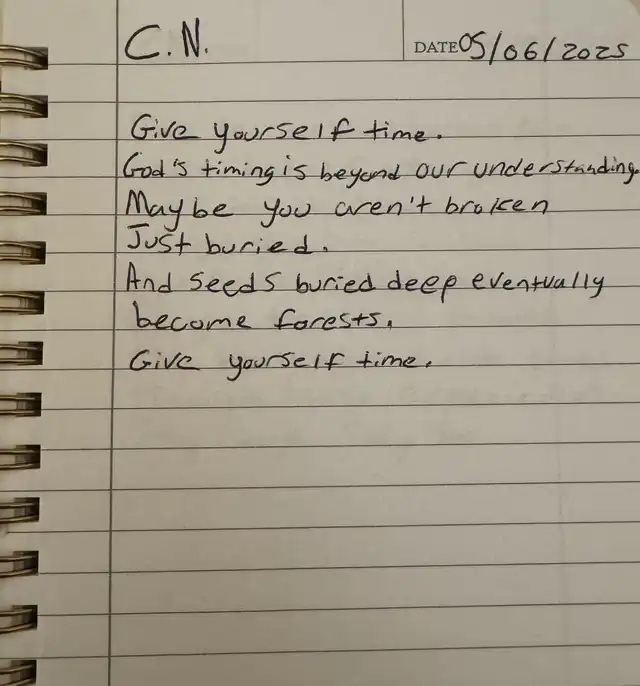 C.N.
DATE 05/06/2025
Give yourself time.
God's timing is beyond our understanding.
Maybe you aren't broken
Just buried.
And seeds buried deep eventually
become forests.
Give yourself time.